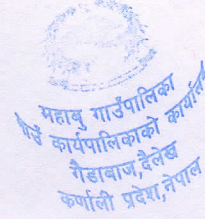 महाबु गाउँपालिका
गाउँ कार्यपालिकाको कार्यालय
गैडाबाज,दैलेख
कर्णाली प्रदेश,नेपाल